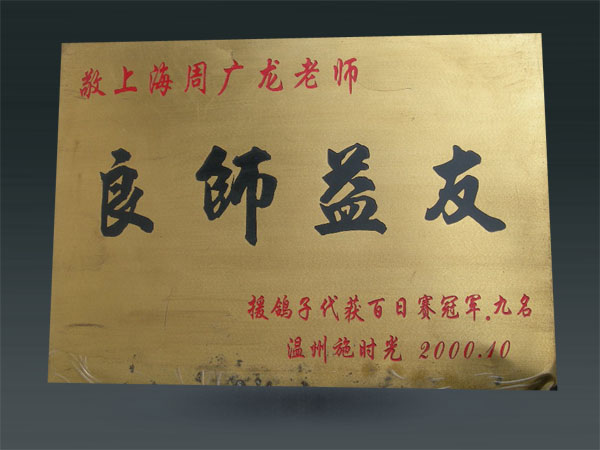 敬上海周广龙老师
良師益友
援鸽子代获百日赛冠军.九名
温州施时光 2000.10